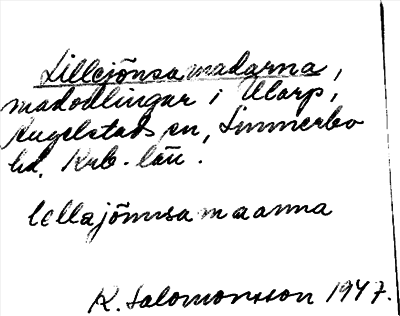 Lillejönsamadarna,
madodlingar i Ularp,
Angelstads sn, Sunnerbo
hd. Krb. län.
lellajönnsamaarna
R. Salomonsson 1947.